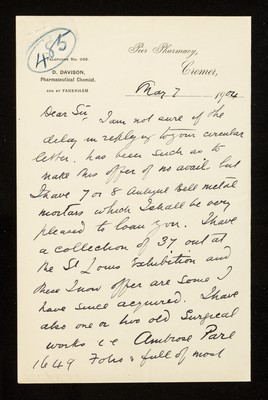 485
TELEPHONE No. 069.
D. DAVISON,
Pharmaceutical Chemist.
AND AT FAKENHAM
Pier Pharmacy,
Cromer,
May 7 1904
Dear Sir
I am not sure if the
delay in replying to your circular
letter, has been such as to
make this offer of no avail but
I have 7 or 8 Antique Bell metal
mortars which I shall be very
pleased to loan you. I have
a collection of 37 out at
the St Louis Exhibition and
these I now offer are some I
have since acquired. I have
also one or two old Surgical
works i e Ambrose Paré
1649 Folio & full of most